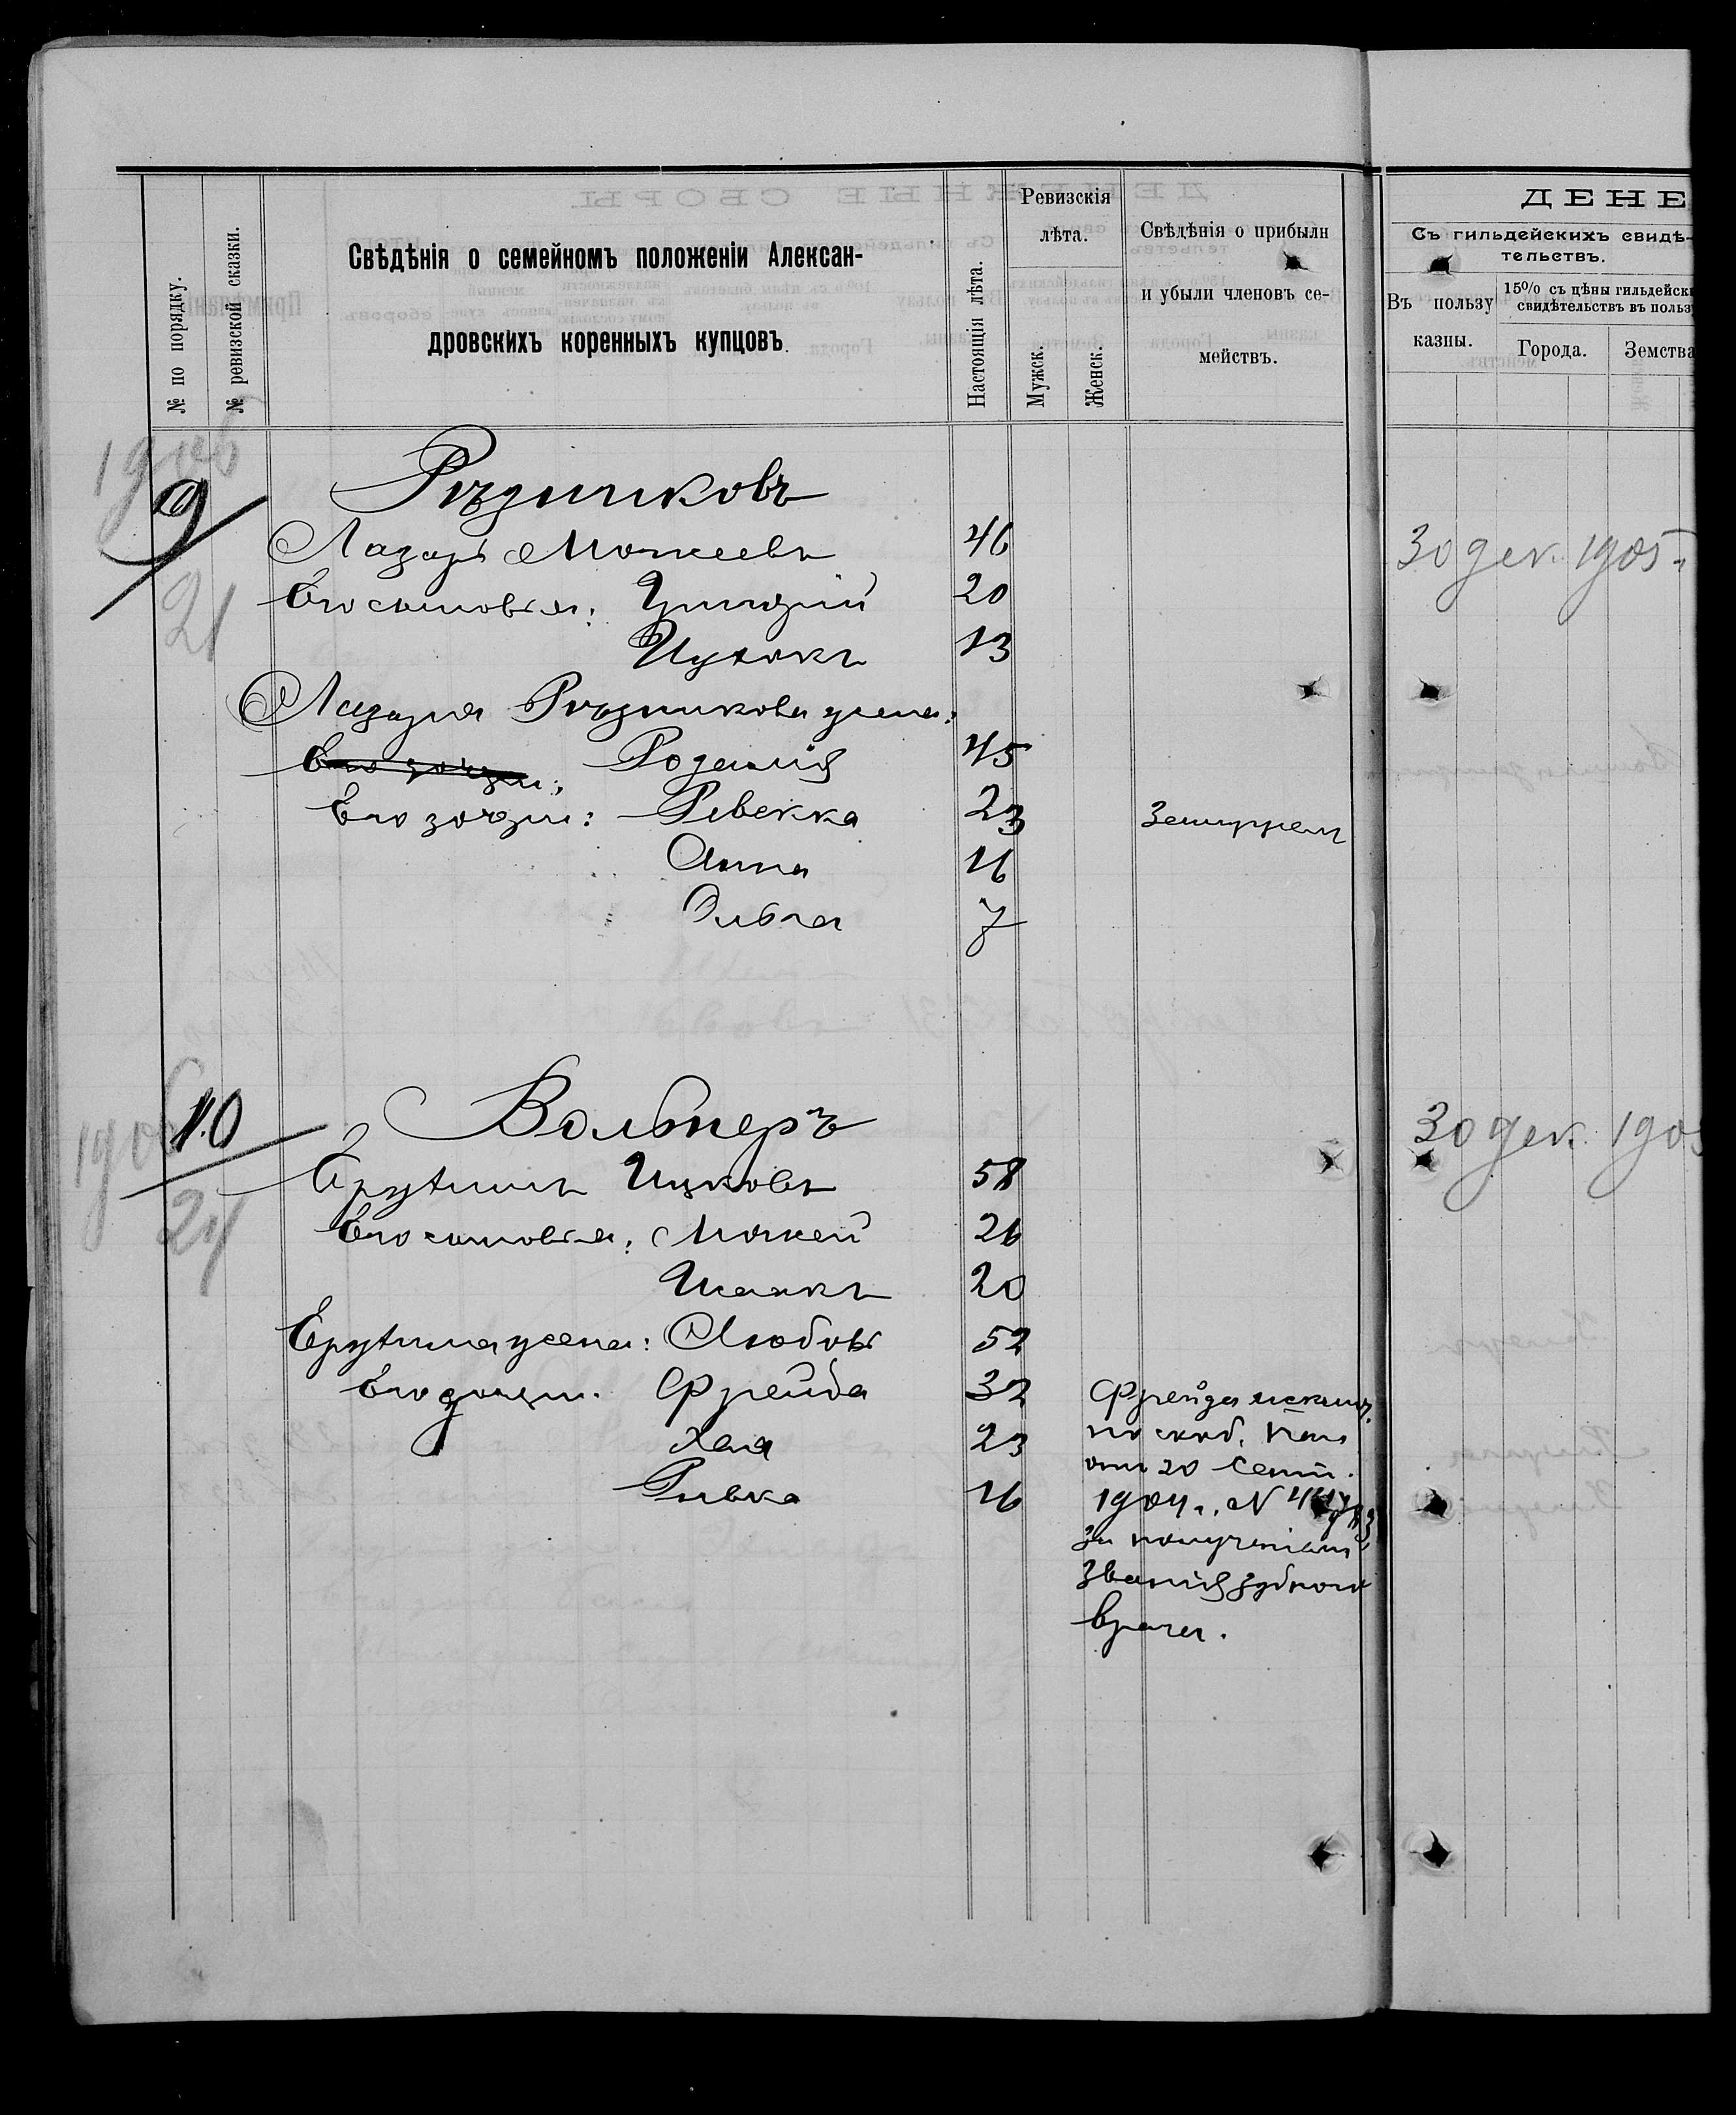 № по порядку.
№ ревизской сказки.
Свѣдѣнія о семейномъ положеніи Алексан-
дровскихъ коренныхъ купцовъ.
Настоящія лѣта.
Ревизскія
лѣта.
Мужск.
Женск.
Свѣдѣнія о прибыли
и убыли членовъ се-
мействъ.
ДЕНЕ
Съ гильдейскихъ свидѣ-
тельствъ.
Въ пользу
казны.
15% съ цѣны гильдейск
свидѣтельствъ въ польз
Города.
Земства
1906
9
21
Рѣзниковъ
Лазарь Мошкеевъ 46
Его сыновья: Григорій 20
Ицхокъ 13
30 дек. 1905 г
Лазаря Рѣзникова жена:
Розалія 45
Его дочери: Ревекка 23 Замужемъ
Анна 16
Ольга 7
1906
10
21
Вольнеръ
30 дек. 190
Ицковъ 58
Его сыновья: Мошкей 26
Исаакъ 20
жена: Любовь 52
Его дочери: Фрейда 32
Хая 23
Ривка 16
Фрейда исключ.
по сооб. Каз.
отъ 20 Сент.
1904 г. №
за полученіемъ
званія зубного
врача.